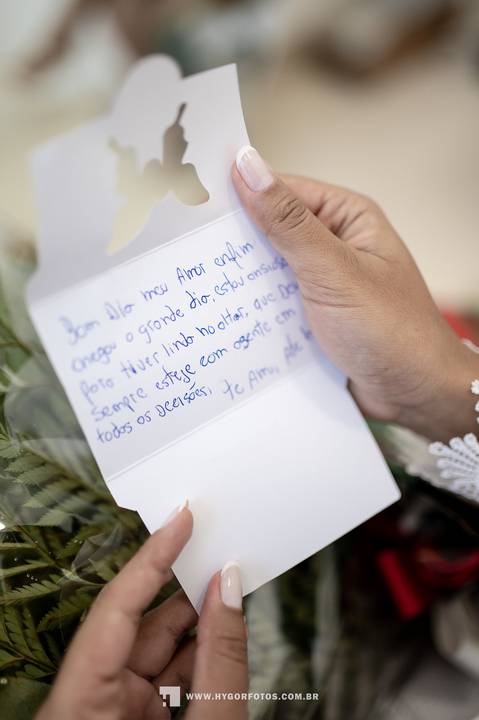 Bom Dia meu Amor enfim
chegou o grande dia, estou ansioso
para ti ver linda no altar, que Deus
sempre esteje com agente em
todos os Decisões, te Amo, até
WWW.HYGORFOTOS.COM.BR